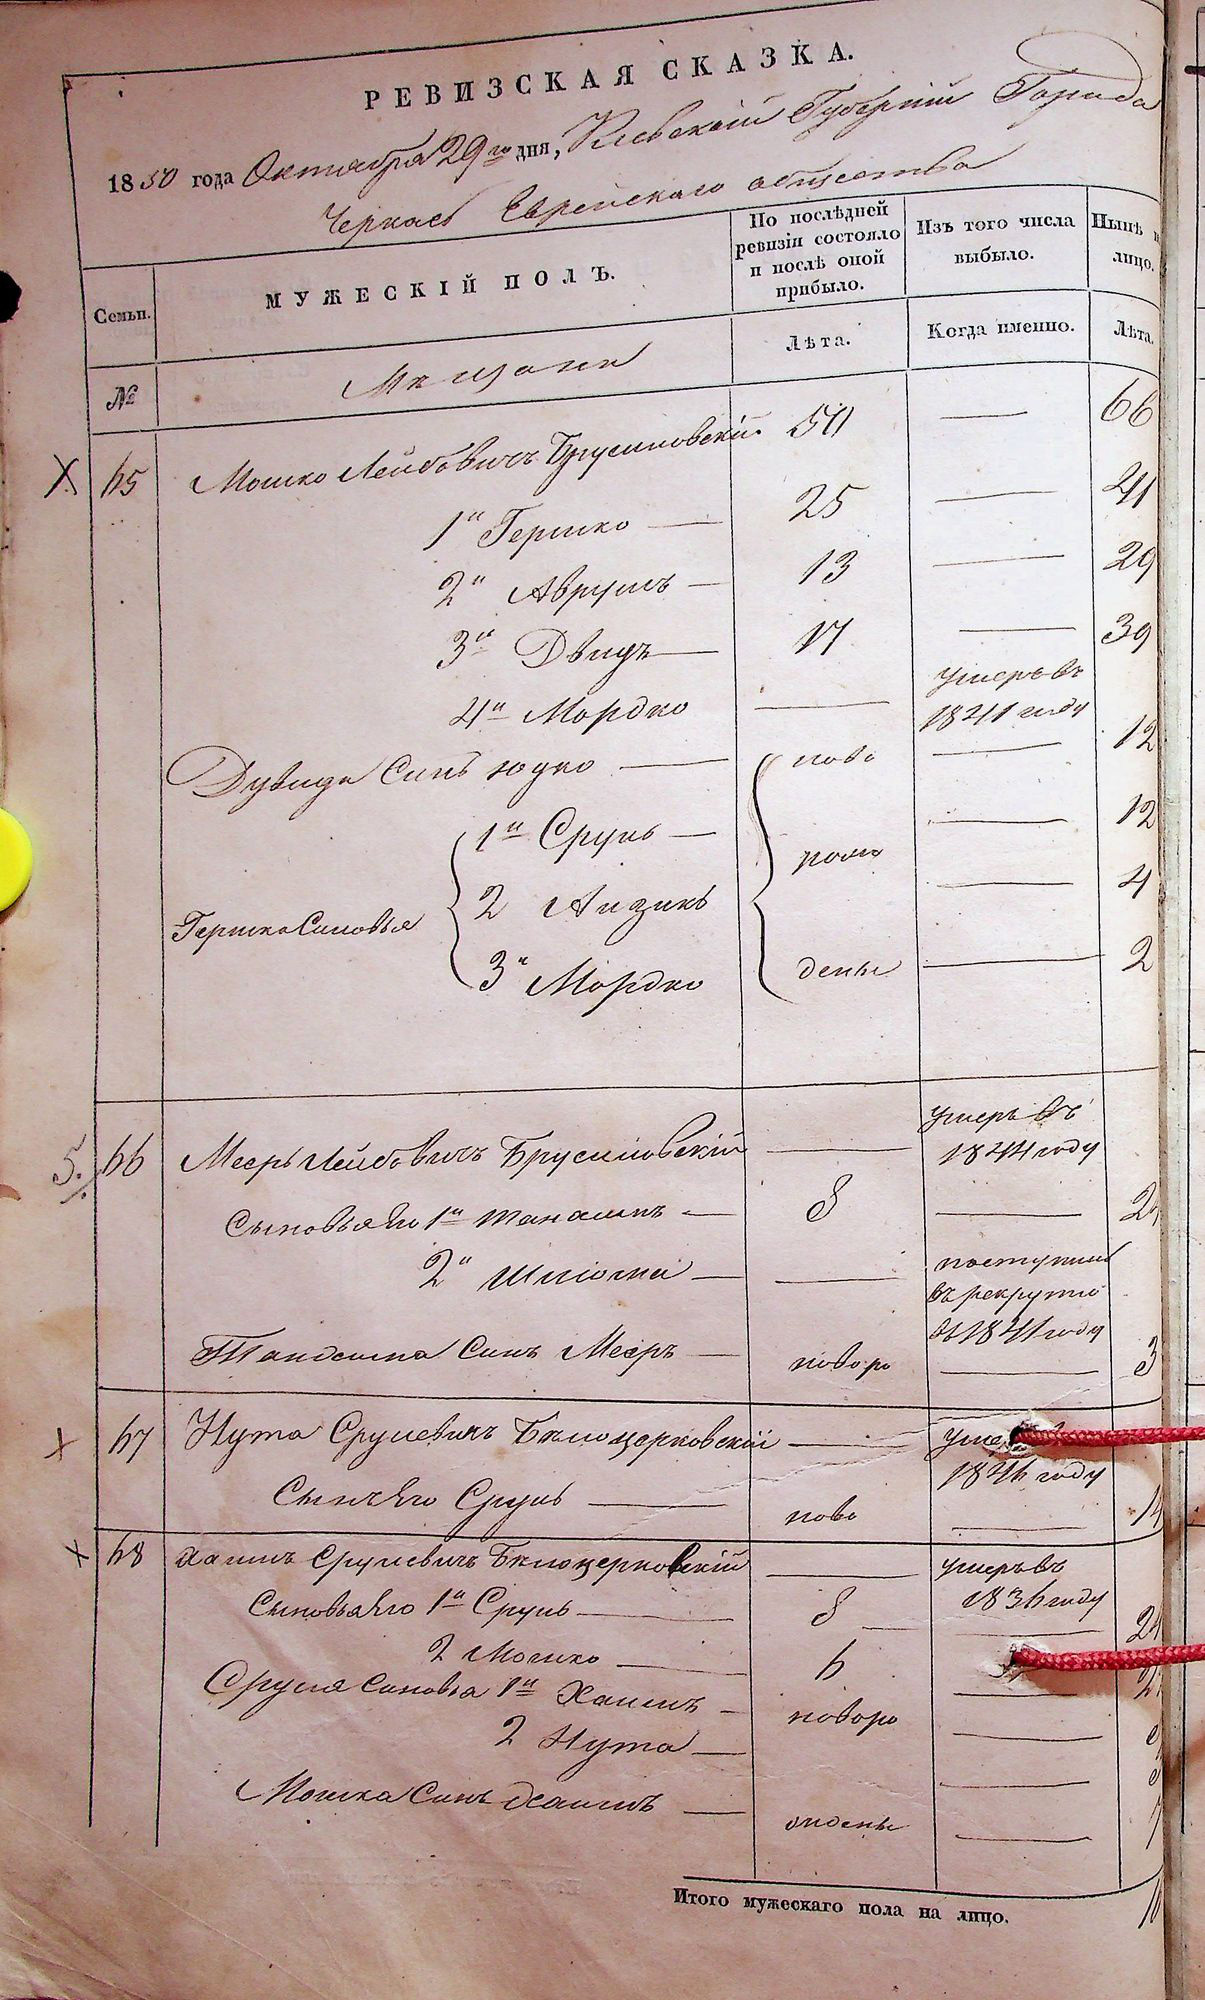 РЕВИЗСКАЯ СКАЗКА.
1850 года Октября 29го дня, Кіевской Губерніи Города
Черкас Еврейскаго общества
Семьи.
МУЖЕСКІЙ ПОЛЪ.
По послѣдней ревизіи состояло и послѣ оной прибыло.
Изъ того числа выбыло.
Нынѣ н лицо.
№
Мѣщане
Лѣта.
Когда именно.
Лѣта.
65 Мошко Лейбовичъ Брусиловскій 50 — 66
1й Гершко — 25 — 41
2й Аврумъ — 13 — 29
3й Двидъ — 17 — 39
4й Мордко — умеръ въ 1841 году
Дувида Синъ Юдко — ново — 12
1й Сруль — 12
Гершка Синовья
2 Аизикъ рож — 4
3й Мордко денъ — 2
5. 66 Мееръ Лейбовичъ Брусиловскій — умеръ въ 1844 году
Сыновья Его 1й — 8 — 24
2й Шлiома — — поступилъ въ рекруты въ 1841 году
Синъ Мееръ — новоро — 3
67 Нута Срулевичъ Бѣлоцерковскій — умеръ 1846 году
Сынъ Его Сруль — ново — 14
68 Хаимъ Срулевичъ Бѣлоцерковскій — умеръ въ 1836 году
Сыновья Его 1й Сруль — 8 — 24
2 Мошко — 6
Сруля Синовья 1й Хаимъ — новоро —
2 Нута — —
Мошка Синъ Хаимъ — жденъ — 7
Итого мужескаго пола на лицо. 10